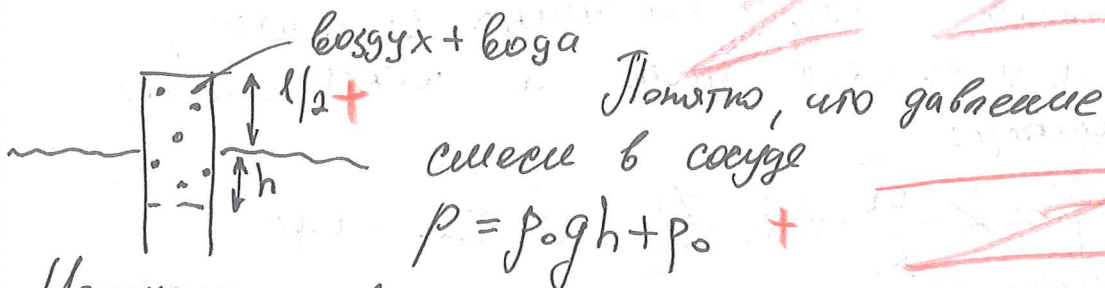 воздух + вода
l/2 +
Понятно, что давление
смеси в сосуде
h
p = ρ₀gh + p₀ +